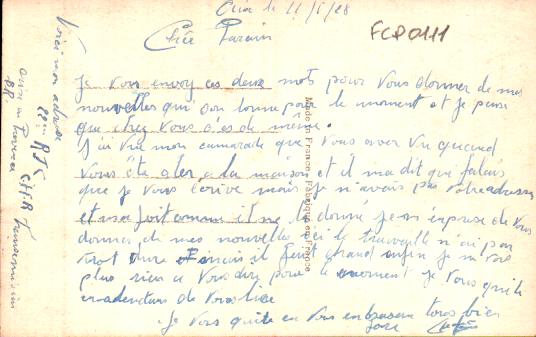 le 11/5/28
FCP0111
Chère Parain
Je vous envoy ces deux mots pour vous donner de mes
nouvelles qui son bonne pour le moment et je pense
que chez vous s'es de même.
J'ai vue mon camarade que vous aver vu quand
vous ête aler a la maison et il ma dit que falais
que je vous écrive mais je n'avais pas votre adresse
et ma foit comme il me la donné je m'enprese de vous
donner de mes nouvelles ici le travaille n'ai pas
trot dure mais il feut grand enfin je ne vois
plus rien a vous dire pour le moment je vous quite
en adendan de vous lire
Je vous quite en vous enbrasan tous bien
Voici mon adresse
Made in France - Fabriqué en France